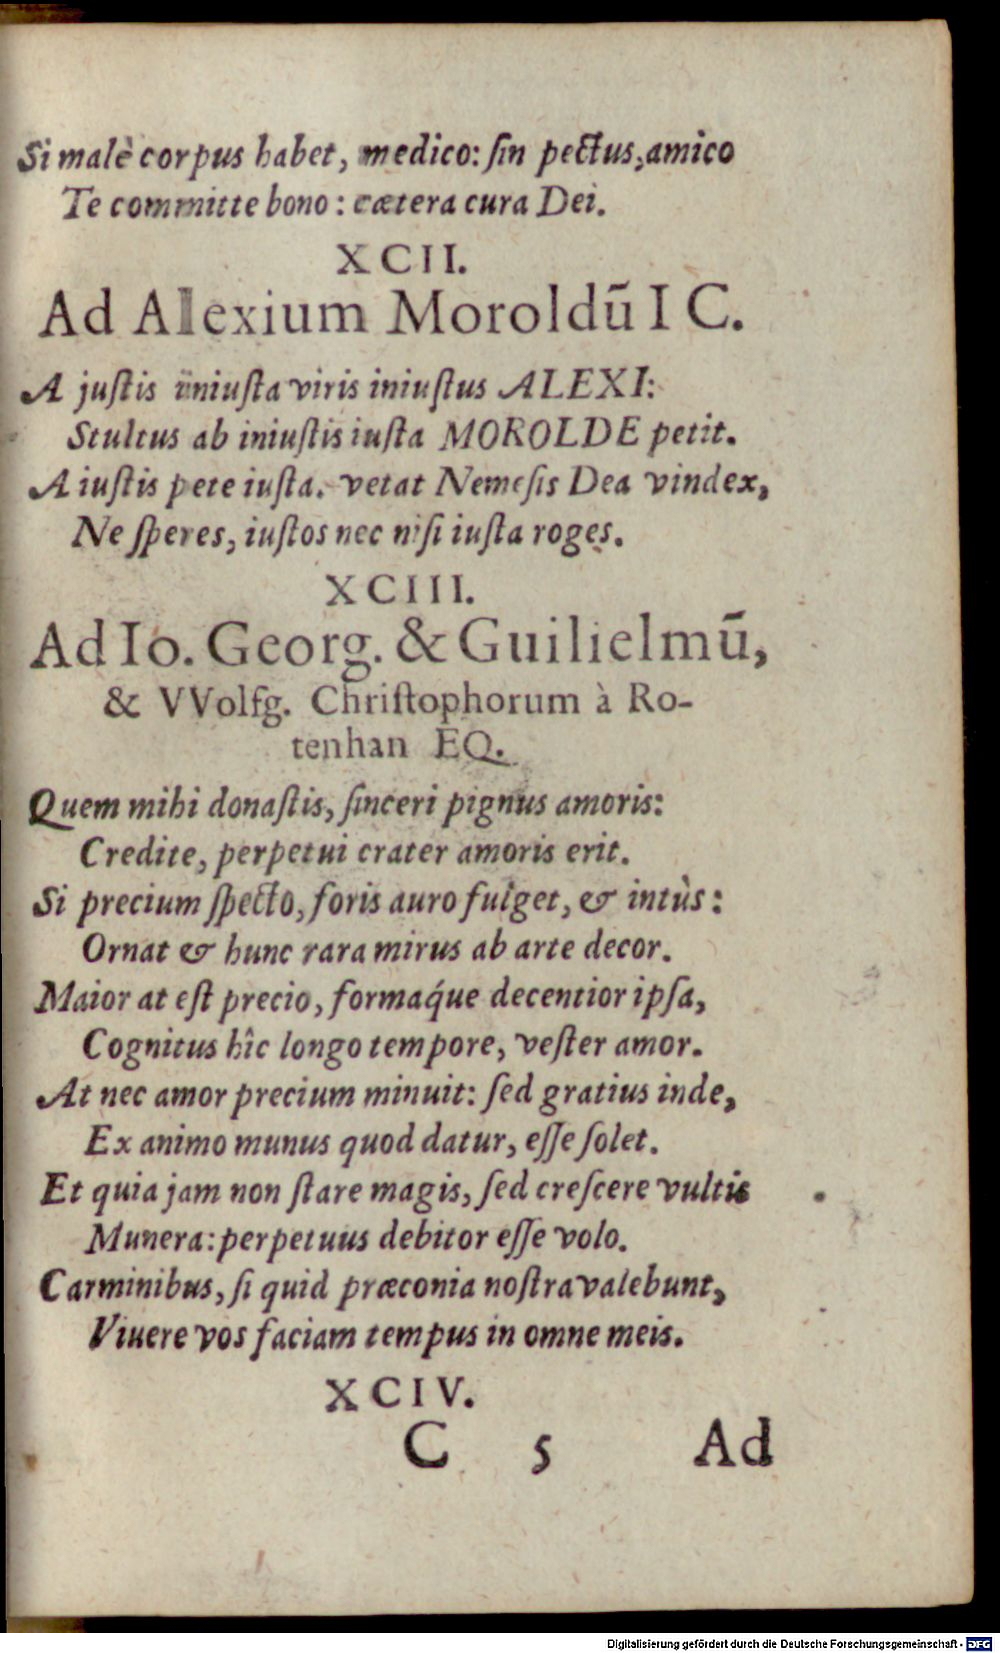 Si malè corpus habet, medico: ſin pectus, amico
Te committe bono: cætera cura Dei.
XCII.
Ad Alexium Moroldũ I C.
A juſtis iniuſta viris iniuſtus ALEXI:
Stultus ab iniuſtis iuſta MOROLDE petit.
A iuſtis pete iuſta. vetat Nemeſis Dea vindex,
Ne ſperes, iuſtos nec niſi iuſta roges.
XCIII.
Ad Io. Georg. & Guilielmũ,
& VVolfg. Chriſtophorum à Ro-
tenhan EQ.
Quem mihi donaſtis, ſinceri pignus amoris:
Credite, perpetui crater amoris erit.
Si precium ſpecto, foris auro fulget, & intùs:
Ornat & hunc rara mirus ab arte decor.
Maior at eſt precio, formaq́ue decentior ipſa,
Cognitus hîc longo tempore, veſter amor.
At nec amor precium minuit: ſed gratius inde,
Ex animo munus quod datur, eſſe ſolet.
Et quia jam non ſtare magis, ſed creſcere vultis
Munera: perpetuus debitor eſſe volo.
Carminibus, ſi quid præconia noſtra valebunt,
Viuere vos faciam tempus in omne meis.
XCIV.
C 5 Ad
Digitalisierung gefördert durch die Deutsche Forschungsgemeinschaft - DFG